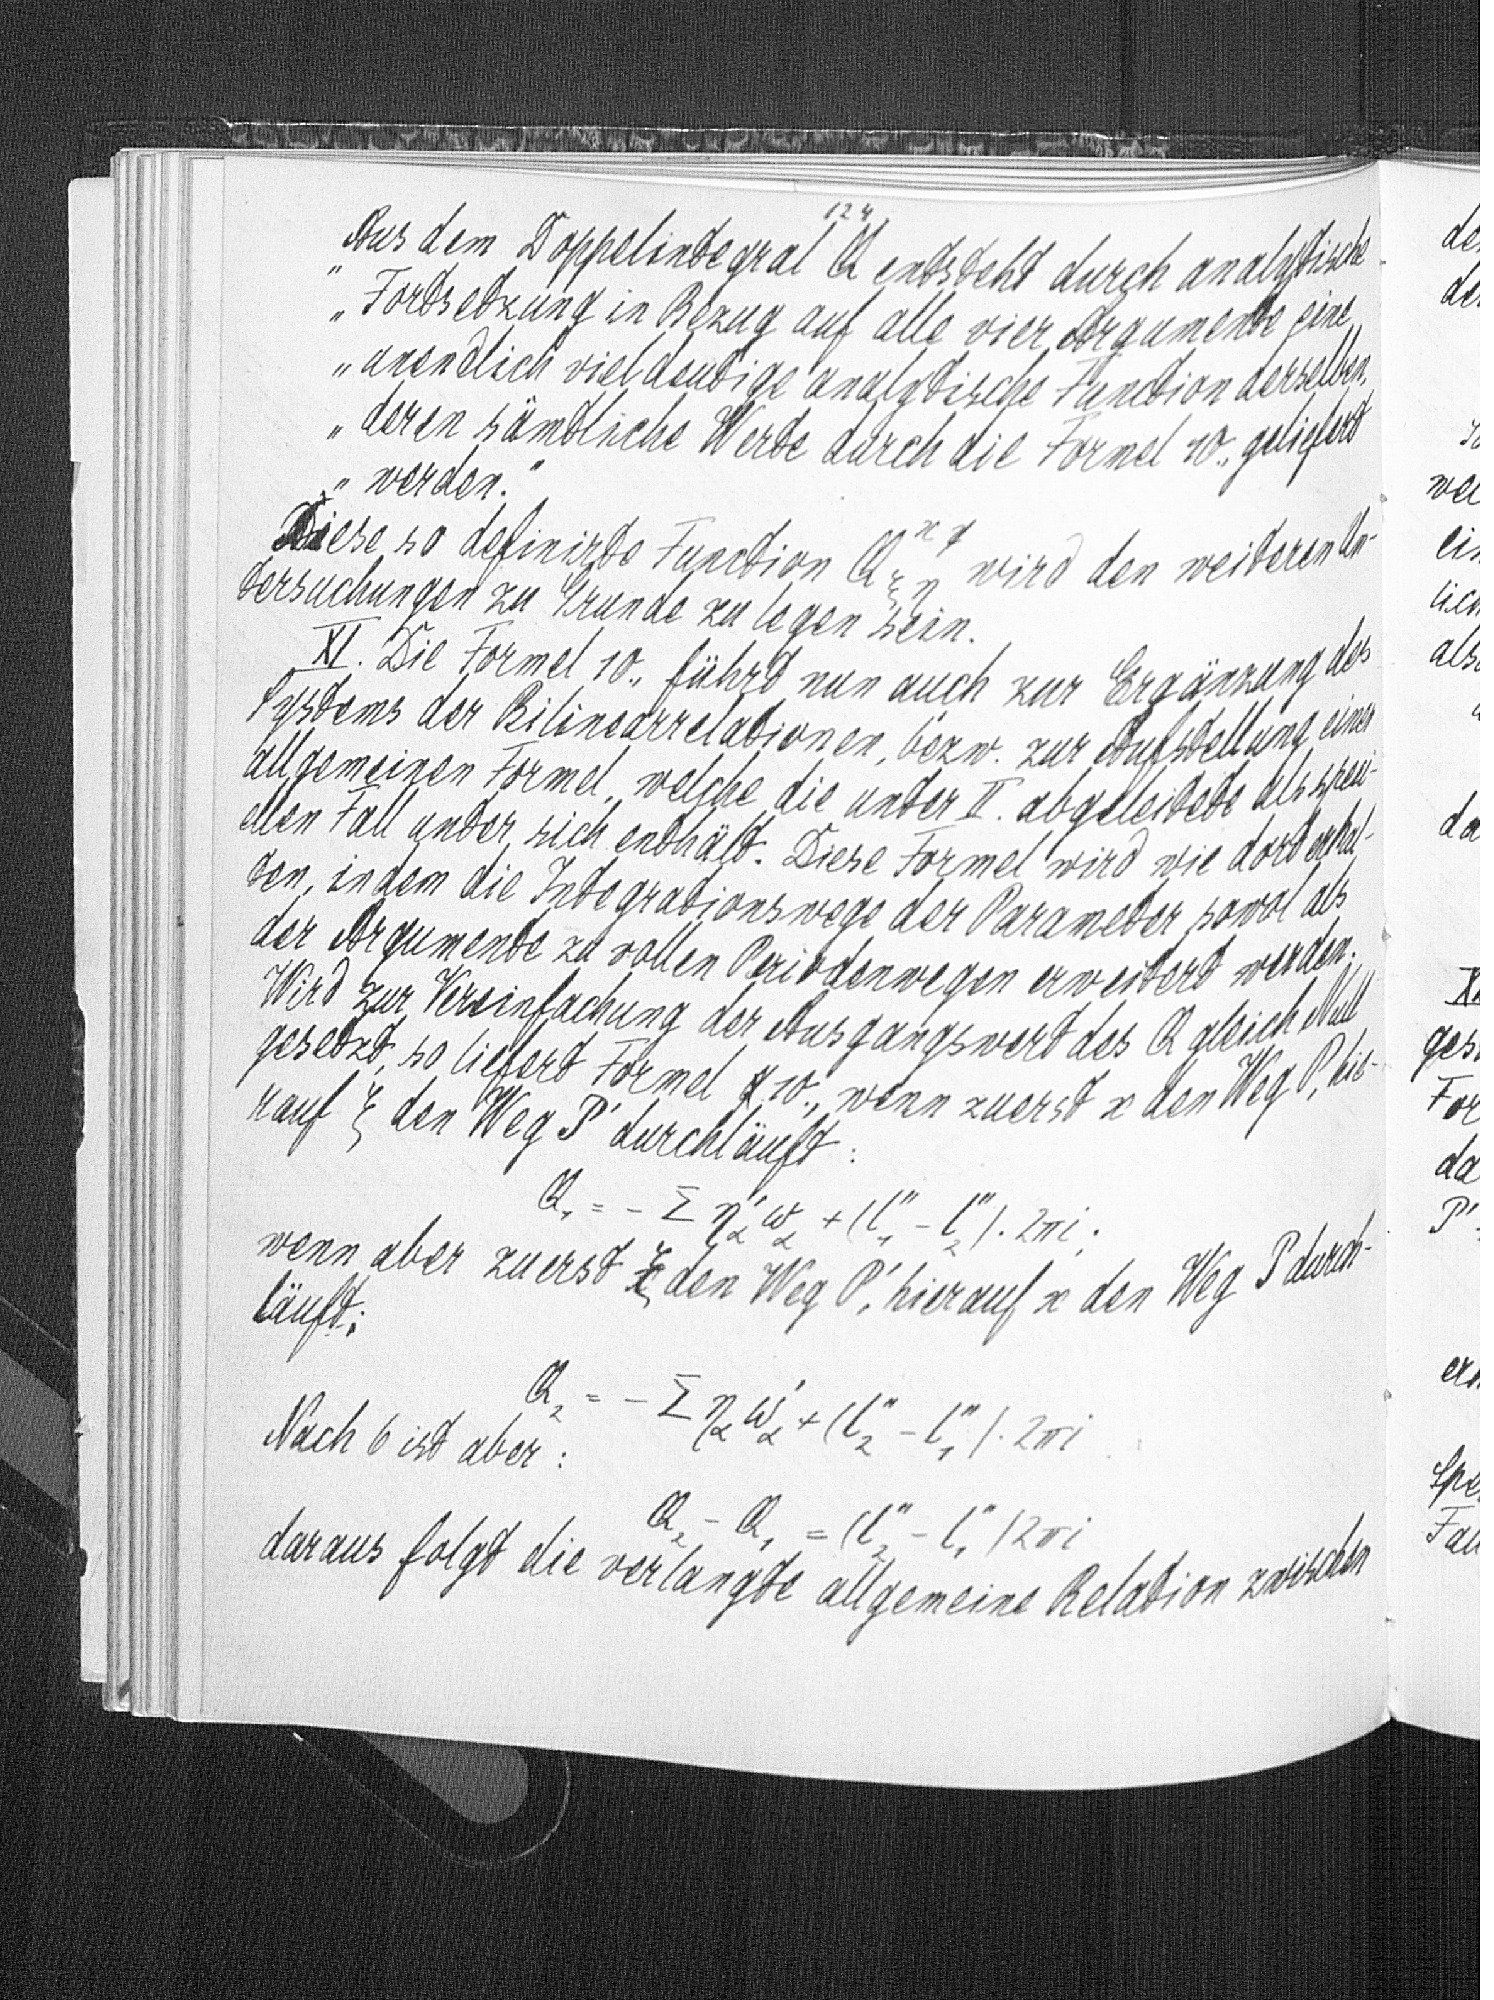 124.
Aus dem Doppelintegral Q entsteht durch analytische
„ Fortsetzung in Bezug auf alle vier Argumente eine
„ unendlich vieldeutige analytische Function derselben,
„ deren sämtliche Werte durch die Formel 10., geliefert
„ werden."
Diese so definirte Function Q^{x y}_{ξ η} wird den weiteren Un-
tersuchungen zu Grunde zu legen sein.
XI. Die Formel 10., führt nun auch zur Ergänzung des
Systems der Bilinearrelationen, bezw. zur Aufstellung einer
allgemeinen Formel, welche die unter II. abgeleitete als speci-
ellen Fall unter sich enthält. Diese Formel wird wie dort erhal-
ten, indem die Integrationswege der Parameter sowol als
der Argumente zu vollen Periodenwegen erweitert werden.
Wird zur Vereinfachung der Ausgangswert des Q gleich Null
gesetzt, so liefert Formel 10., wenn zuerst x den Weg P, hie-
rauf ξ den Weg P' durchläuft:
Q₁ = - Σ η'_α ω_α + (l₁'' - l₂'')·2πi;
wenn aber zuerst ξ den Weg P', hierauf x den Weg P durch-
läuft:
Q₂ = - Σ η_α ω'_α + (l₂'' - l₁'')·2πi
Nach 6 ist aber:
Q₂ - Q₁ = (l₂'' - l₁'')2πi
daraus folgt die verlangte allgemeine Relation zwischen